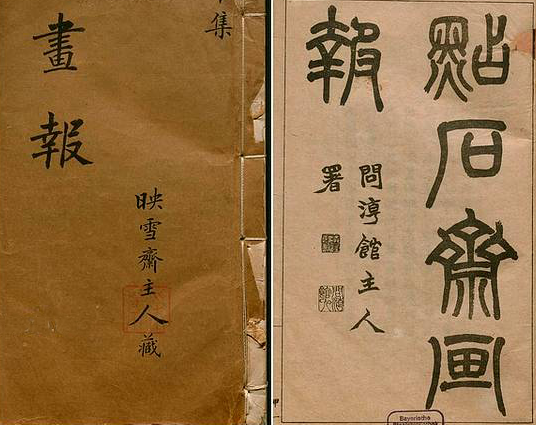 集
畫報
映雪齋主人藏
點石齋画
報
問渟館主人
署
Bayerische